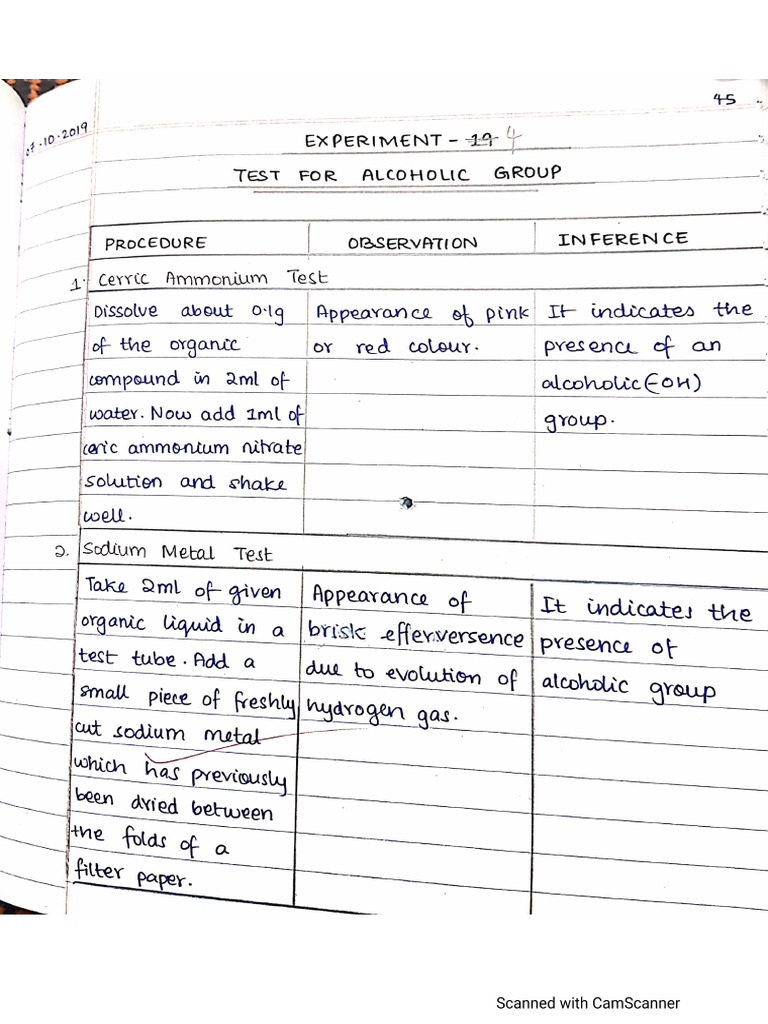 45
07.10.2019
EXPERIMENT - 19 4
TEST FOR ALCOHOLIC GROUP
PROCEDURE OBSERVATION INFERENCE
1. Cerric Ammonium Test
Dissolve about 0.1g
of the organic
compound in 2ml of
water. Now add 1ml of
ceric ammonium nitrate
solution and shake
well.
Appearance of pink
or red colour.
It indicates the
presence of an
alcoholic (-OH)
group.
2. Sodium Metal Test
Take 2ml of given
organic liquid in a
test tube. Add a
small piece of freshly
cut sodium metal
which has previously
been dried between
the folds of a
filter paper.
Appearance of
brisk efferversence
due to evolution of
hydrogen gas.
It indicates the
presence of
alcoholic group
Scanned with CamScanner